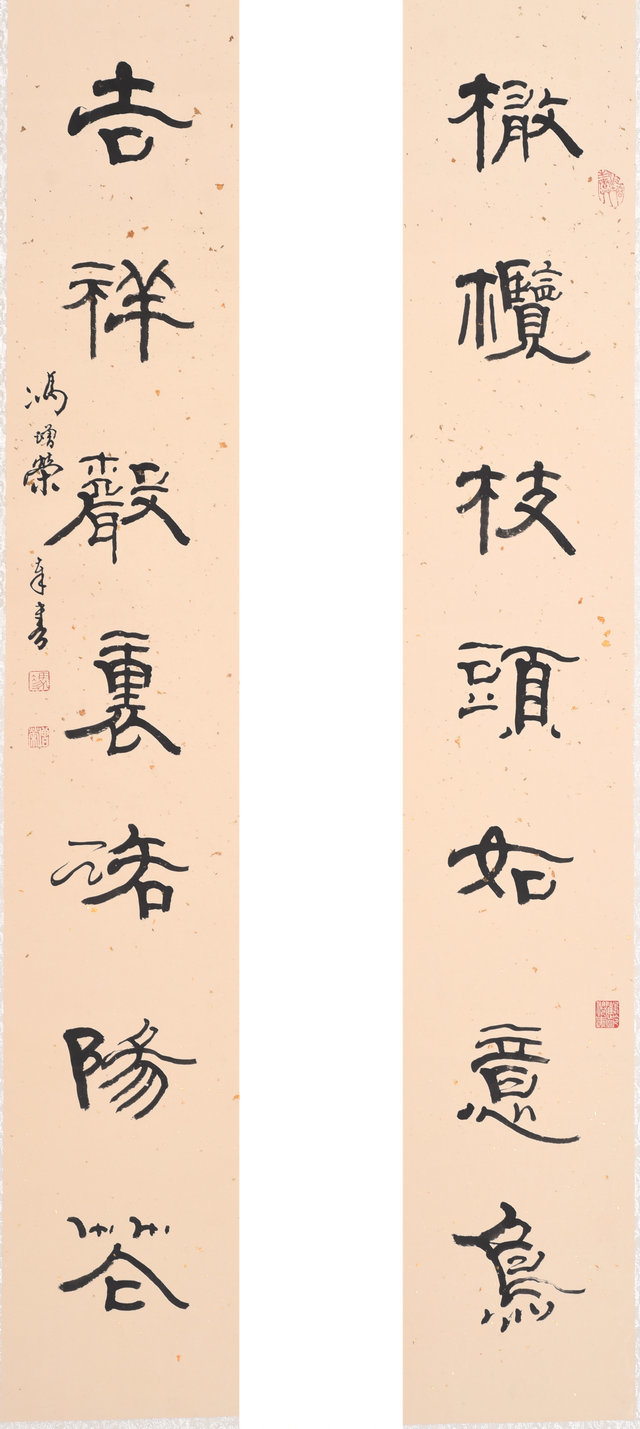 橄欖枝頭如意鳥
吉祥聲裏洛陽花
馮增榮 書